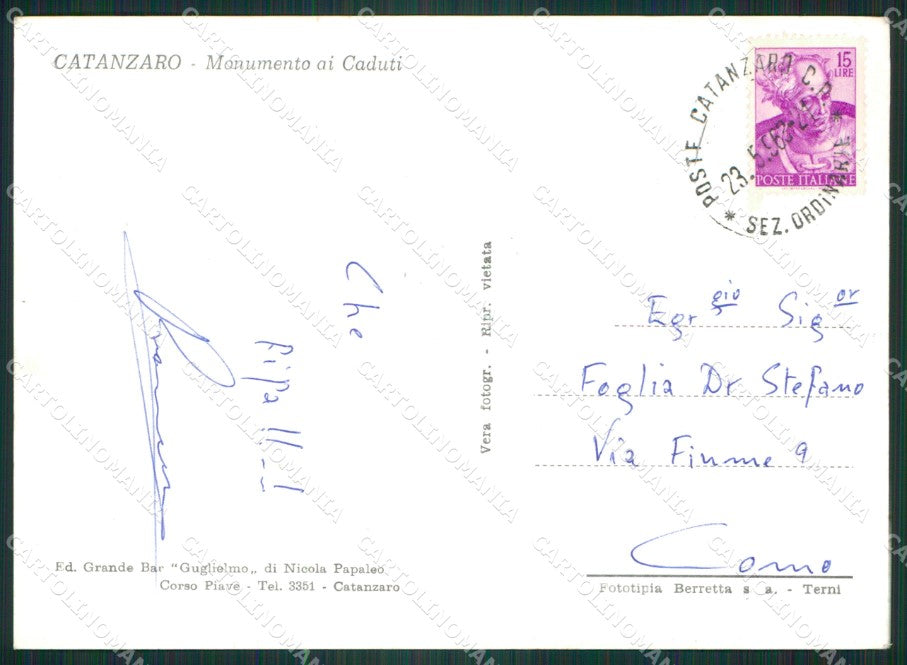 CATANZARO - Monumento ai Caduti
15
LIRE
POSTE ITALIANE
POSTE CATANZARO C.P.
23.5.963
* SEZ. ORDINARIE *
Vera fotogr. - Ripr. vietata
Che
Ripa !!_!
Egr gio Sig or
Foglia Dr Stefano
Via Fiume 9
Como
Ed. Grande Bar “Guglielmo„ di Nicola Papaleo
Corso Piave - Tel. 3351 - Catanzaro
Fototipia Berretta s a. - Terni
CARTOLINOMANIA